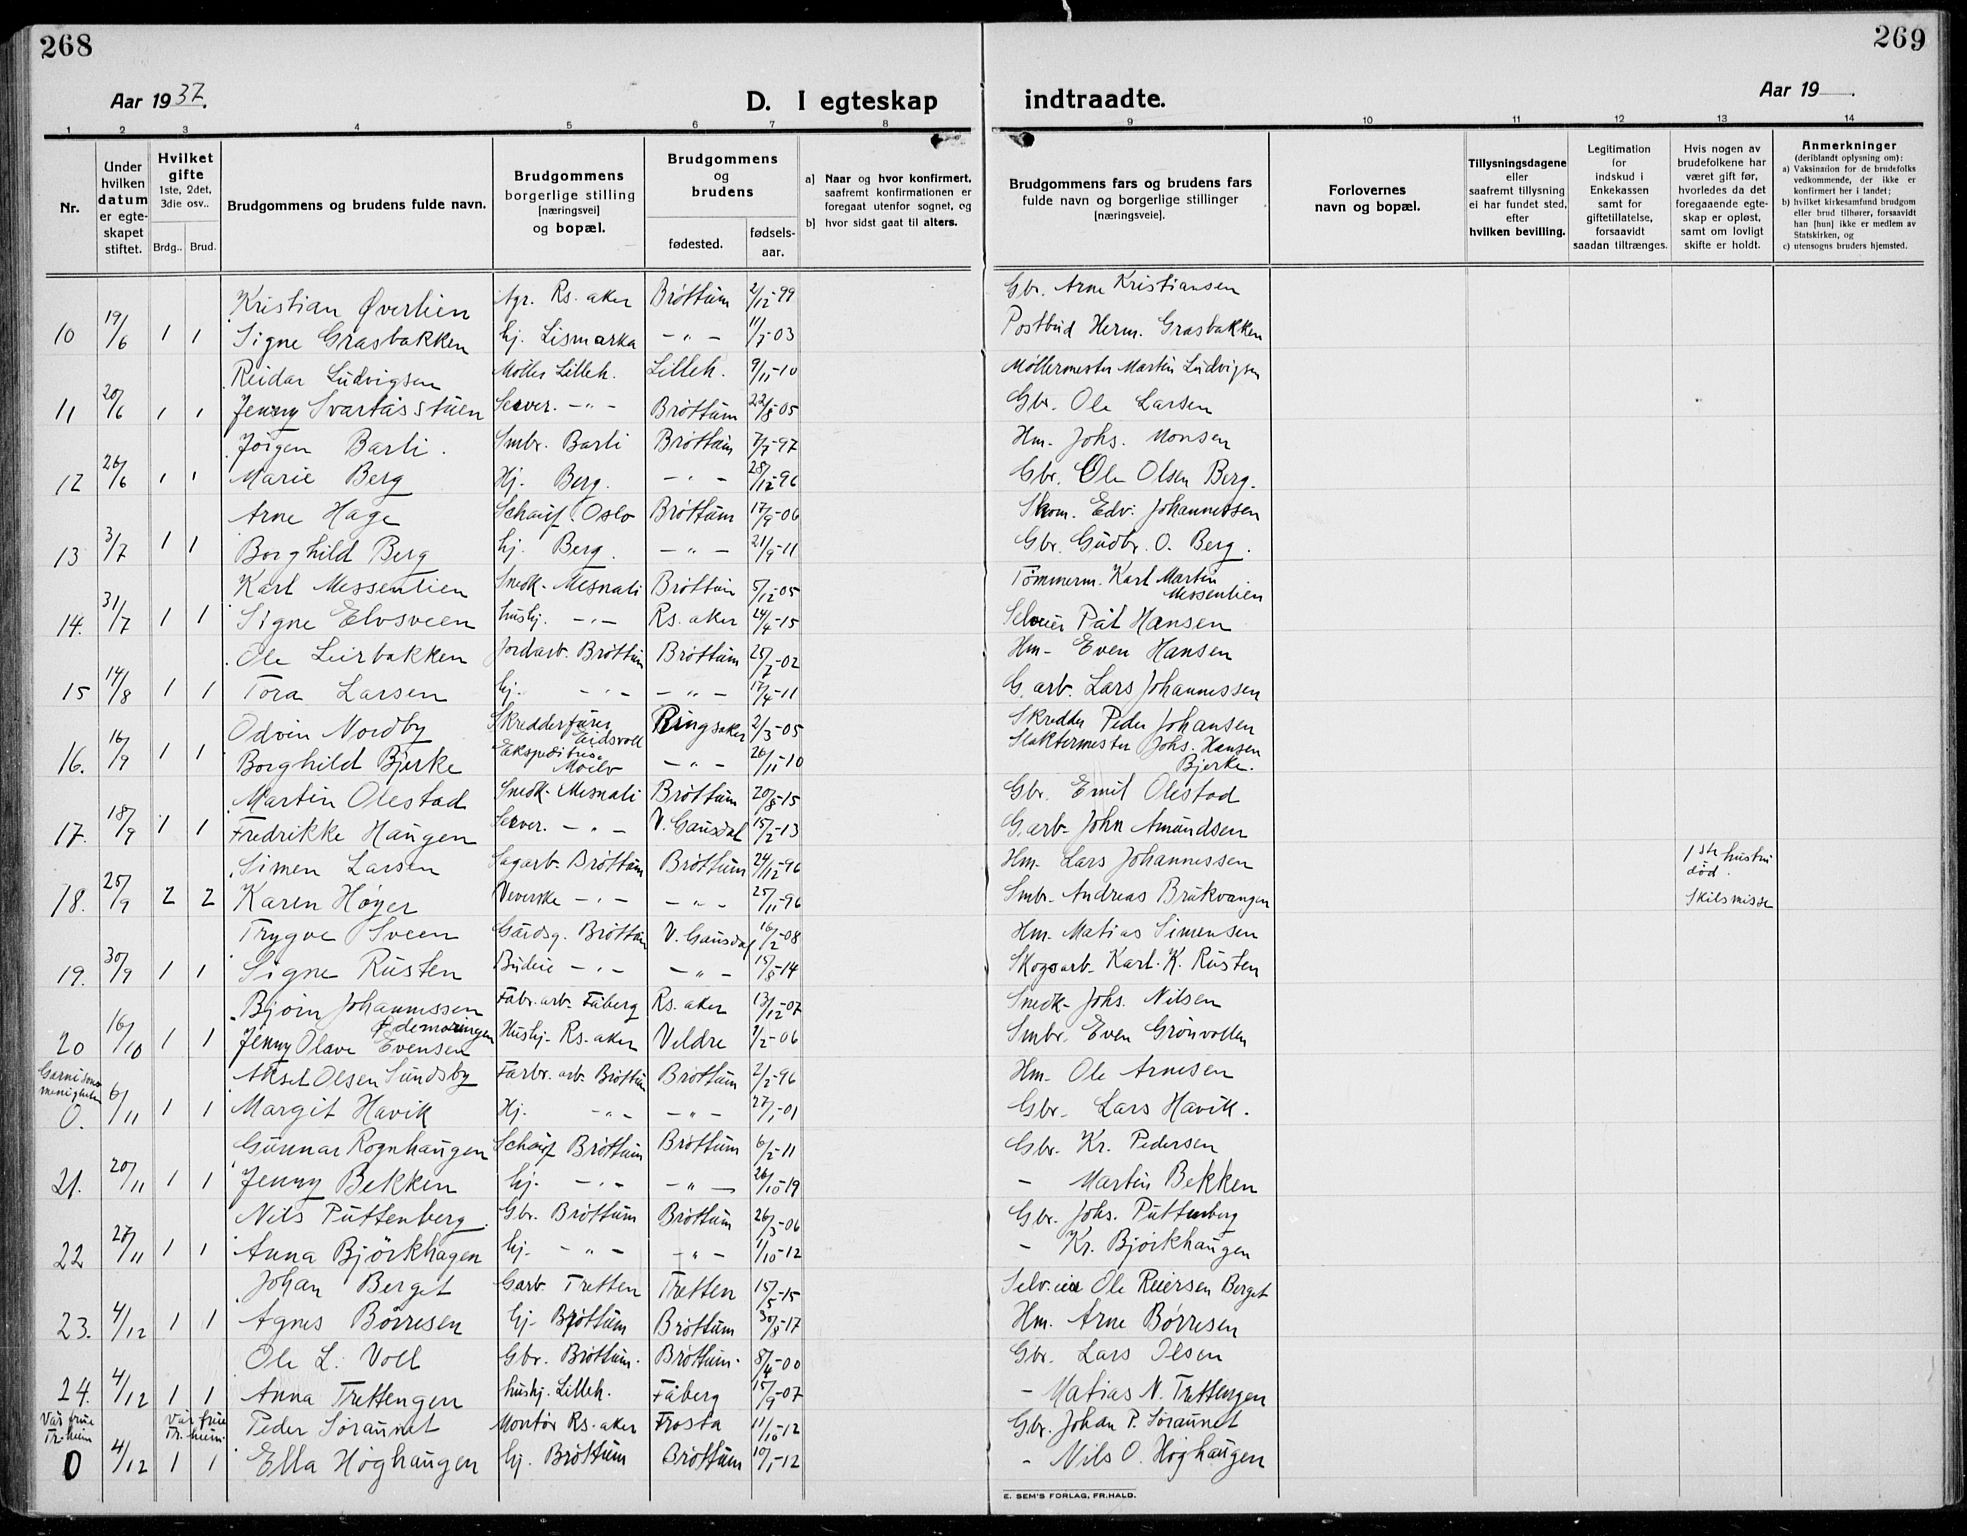 268
269
Aar 1937.
D. I egteskap
indtraadte.
Aar 19 .
1 2 3 4 5 6 7 8 9 10 11 12 13 14
Nr.
Under hvilken datum er egte-skapet stiftet.
Hvilket gifte 1ste, 2det, 3die osv..
Brdg.. Brud.
Brudgommens og brudens fulde navn.
Brudgommens borgerlige stilling [næringsvei] og bopæl.
Brudgommens og brudens
fødested. fødsels-aar.
a) Naar og hvor konfirmert, saafremt konfirmationen er foregaat utenfor sognet, og
b) hvor sidst gaat til alters.
Brudgommens fars og brudens fars fulde navn og borgerlige stillinger [næringsveie].
Forlovernes navn og bopæl.
Tillysningsdagene eller saafremt tillysning ei har fundet sted, efter hvilken bevilling.
Legitimation for indskud i Enkekassen samt for giftetillatelse, forsaavidt saadan tiltrænges.
Hvis nogen av brudefolkene har været gift før, hvorledes da det foregaaende egte-skap er opløst, samt om lovligt skifte er holdt.
Anmerkninger (deriblandt oplysning om):
a) Vaksination for de brudefolks vedkommende, der ikke er konfirmert her i landet;
b) hvilket kirkesamfund brudgom eller brud tilhører, forsaavidt han [hun] ikke er medlem av Statskirken, og
c) utensogns bruders hjemsted.
Kristian Øverlien Agr. Rs. aker Brøttum 2/12-99 Gbr. Arne Kristiansen
10 19/6 1 1 Signe Grasbakken hj. Lismarka - " - 11/7-03 Postbud Herm. Grasbakken
Reidar Ludvigsen Møller Lilleh. Lilleh. 9/11-10 Møllermester Martin Ludvigsen
11 20/6 1 1 Jenny Svartåsstuen Server. - " - Brøttum 22/8-05 Gbr. Ole Larsen
Jørgen Barli Smbr. Barli Brøttum 7/7-97 Hm. Johs. Monsen
12 26/6 1 1 Marie Berg Hj. Berg. - " - 28/12-96 Gbr. Ole Olsen Berg.
Arne Hage Schauf Oslo Brøttum 17/9-06 Skom. Edv. Johannessen
13 3/7 1 1 Borghild Berg hj. Berg. - " - 21/9-11 Gbr. Gudbr. O. Berg.
Karl Messenlien Snedk. Mesnali Brøttum 5/12-05 Tømmerm. Karl Martin Messenlien
14. 31/7 1 1 Signe Elvsveen hushj. - " - Rs. aker 24/4-15 Selveier Pål Hansen
Ole Leirbakken Jordarb. Brøttum Brøttum 25/7-02 Hm- Even Hansen
15 14/8 1 1 Tora Larsen hj. - " - - " - 17/4-11 G. arb. Lars Johannessen
Odvin Nordby Skredder Eidsvoll Ringsaker 2/3-05 Skredder Peder Johansen
16. 16/9 1 1 Borghild Bjerke Ekspeditrise Moelv - " - 26/11-10 Slaktermester Johs. Hansen Bjerke.
Martin Olestad Snedk. Mesnali Brøttum 20/8-15 Gbr. Emil Olestad
17. 18/9 1 1 Fredrikke Haugen Server. - " - V. Gausdal 15/2-13 G.arb- John Amundsen
Simen Larsen Sagarb. Brøttum Brøttum 24/12-96 Hm. Lars Johannessen 1ste hustru død.
18. 25/9 2 2 Karen Høyer Veverske - " - - " - 25/11-96 Smbr. Andreas Brukvangen Skilsmisse
Trygve Sveen Gårdsg. Brøttum V. Gausdal 16/2-08 Hm. Matias Simensen
19. 30/9 1 1 Signe Rusten Budeie - " - - " - 15/8-14 Skogsarb. Karl. K. Rusten
Bjørn Johannessen Ødemoringen Fabr.arb. Fåberg Rs. aker 13/12-07 Snedk- Johs. Nilsen
20 16/10 1 1 Jenny Olave Evensen Hushj. Rs. aker Veldre 1/2-06 Smbr. Even Grønvollen
Garnisons menigheten
Aksel Olsen Sundsby Farbr. arb. Brøttum Brøttum 2/2-96 Hm. Ole Arnesen
0. 6/11 1 1 Margit Havik Hj. - " - - " - 27/1-01 Gbr. Lars Havik.
Gunnar Rognhaugen Schauf Brøttum Brøttum 6/2-11 Gbr. Kr. Pedersen
21. 20/11 1 1 Jenny Bekken hj. - " - - " - 26/10-19 - Martin Bekken
Nils Puttenberg. Gbr. Brøttum Brøttum 26/3-06 Gbr. Johs. Puttenberg
22 27/11 1 1 Anna Bjørkhagen hj. - " - - " - 1/10-12 - Kr. Bjørkhaugen
Johan Berget Garb. Tretten Tretten 15/5-15 Selveier Ole Reiersen Berget
23. 4/12 1 1 Agnes Børresen hj- Brøttum Brøttum 30/8-17 Hm. Arne Børresen
Ole L. Voll Gbr. Brøttum. Brøttum. 8/4-00 Gbr. Lars Olsen
24. 4/12 1 1 Anna Trettengen hushj. Lilleh. Fåberg 15/9-07 - Matias N. Trettengen
Vår frue Tr.heim Vår frue Tr.heim. Peder Søraunet Montør Rs. aker Frosta 11/10-12 Gbr. Johan P. Søraunet
0 4/12 1 1 Ella Høghaugen hj. Brøttum Brøttum 10/1-12 - Nils O. Høghaugen
E. SEM'S FORLAG, FR.HALD.